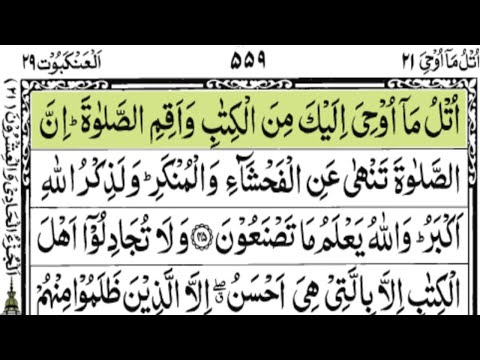 اُتْلُ مَآ اُوْحِیَ ٢١
٥٥٩
اَلْعَنْکَبُوْت ٢٩
اُتْلُ مَآ اُوْحِیَ اِلَیْكَ مِنَ الْکِتٰبِ وَاَقِمِ الصَّلٰوةَ ؕ اِنَّ
الصَّلٰوةَ تَنْهٰی عَنِ الْفَحْشَآءِ وَالْمُنْكَرِ ؕ وَلَذِكْرُ اللّٰهِ
اَكْبَرُ ؕ وَاللّٰهُ یَعْلَمُ مَا تَصْنَعُوْنَ ﴿٤٥﴾ وَلَا تُجَادِلُوْٓا اَهْلَ
الْكِتٰبِ اِلَّا بِالَّتِیْ هِیَ اَحْسَنُ ۖ اِلَّا الَّذِیْنَ ظَلَمُوْا مِنْهُمْ
اَلْجُزْءُ الْحَادِیْ وَالْعِشْرُوْنَ (٢١)